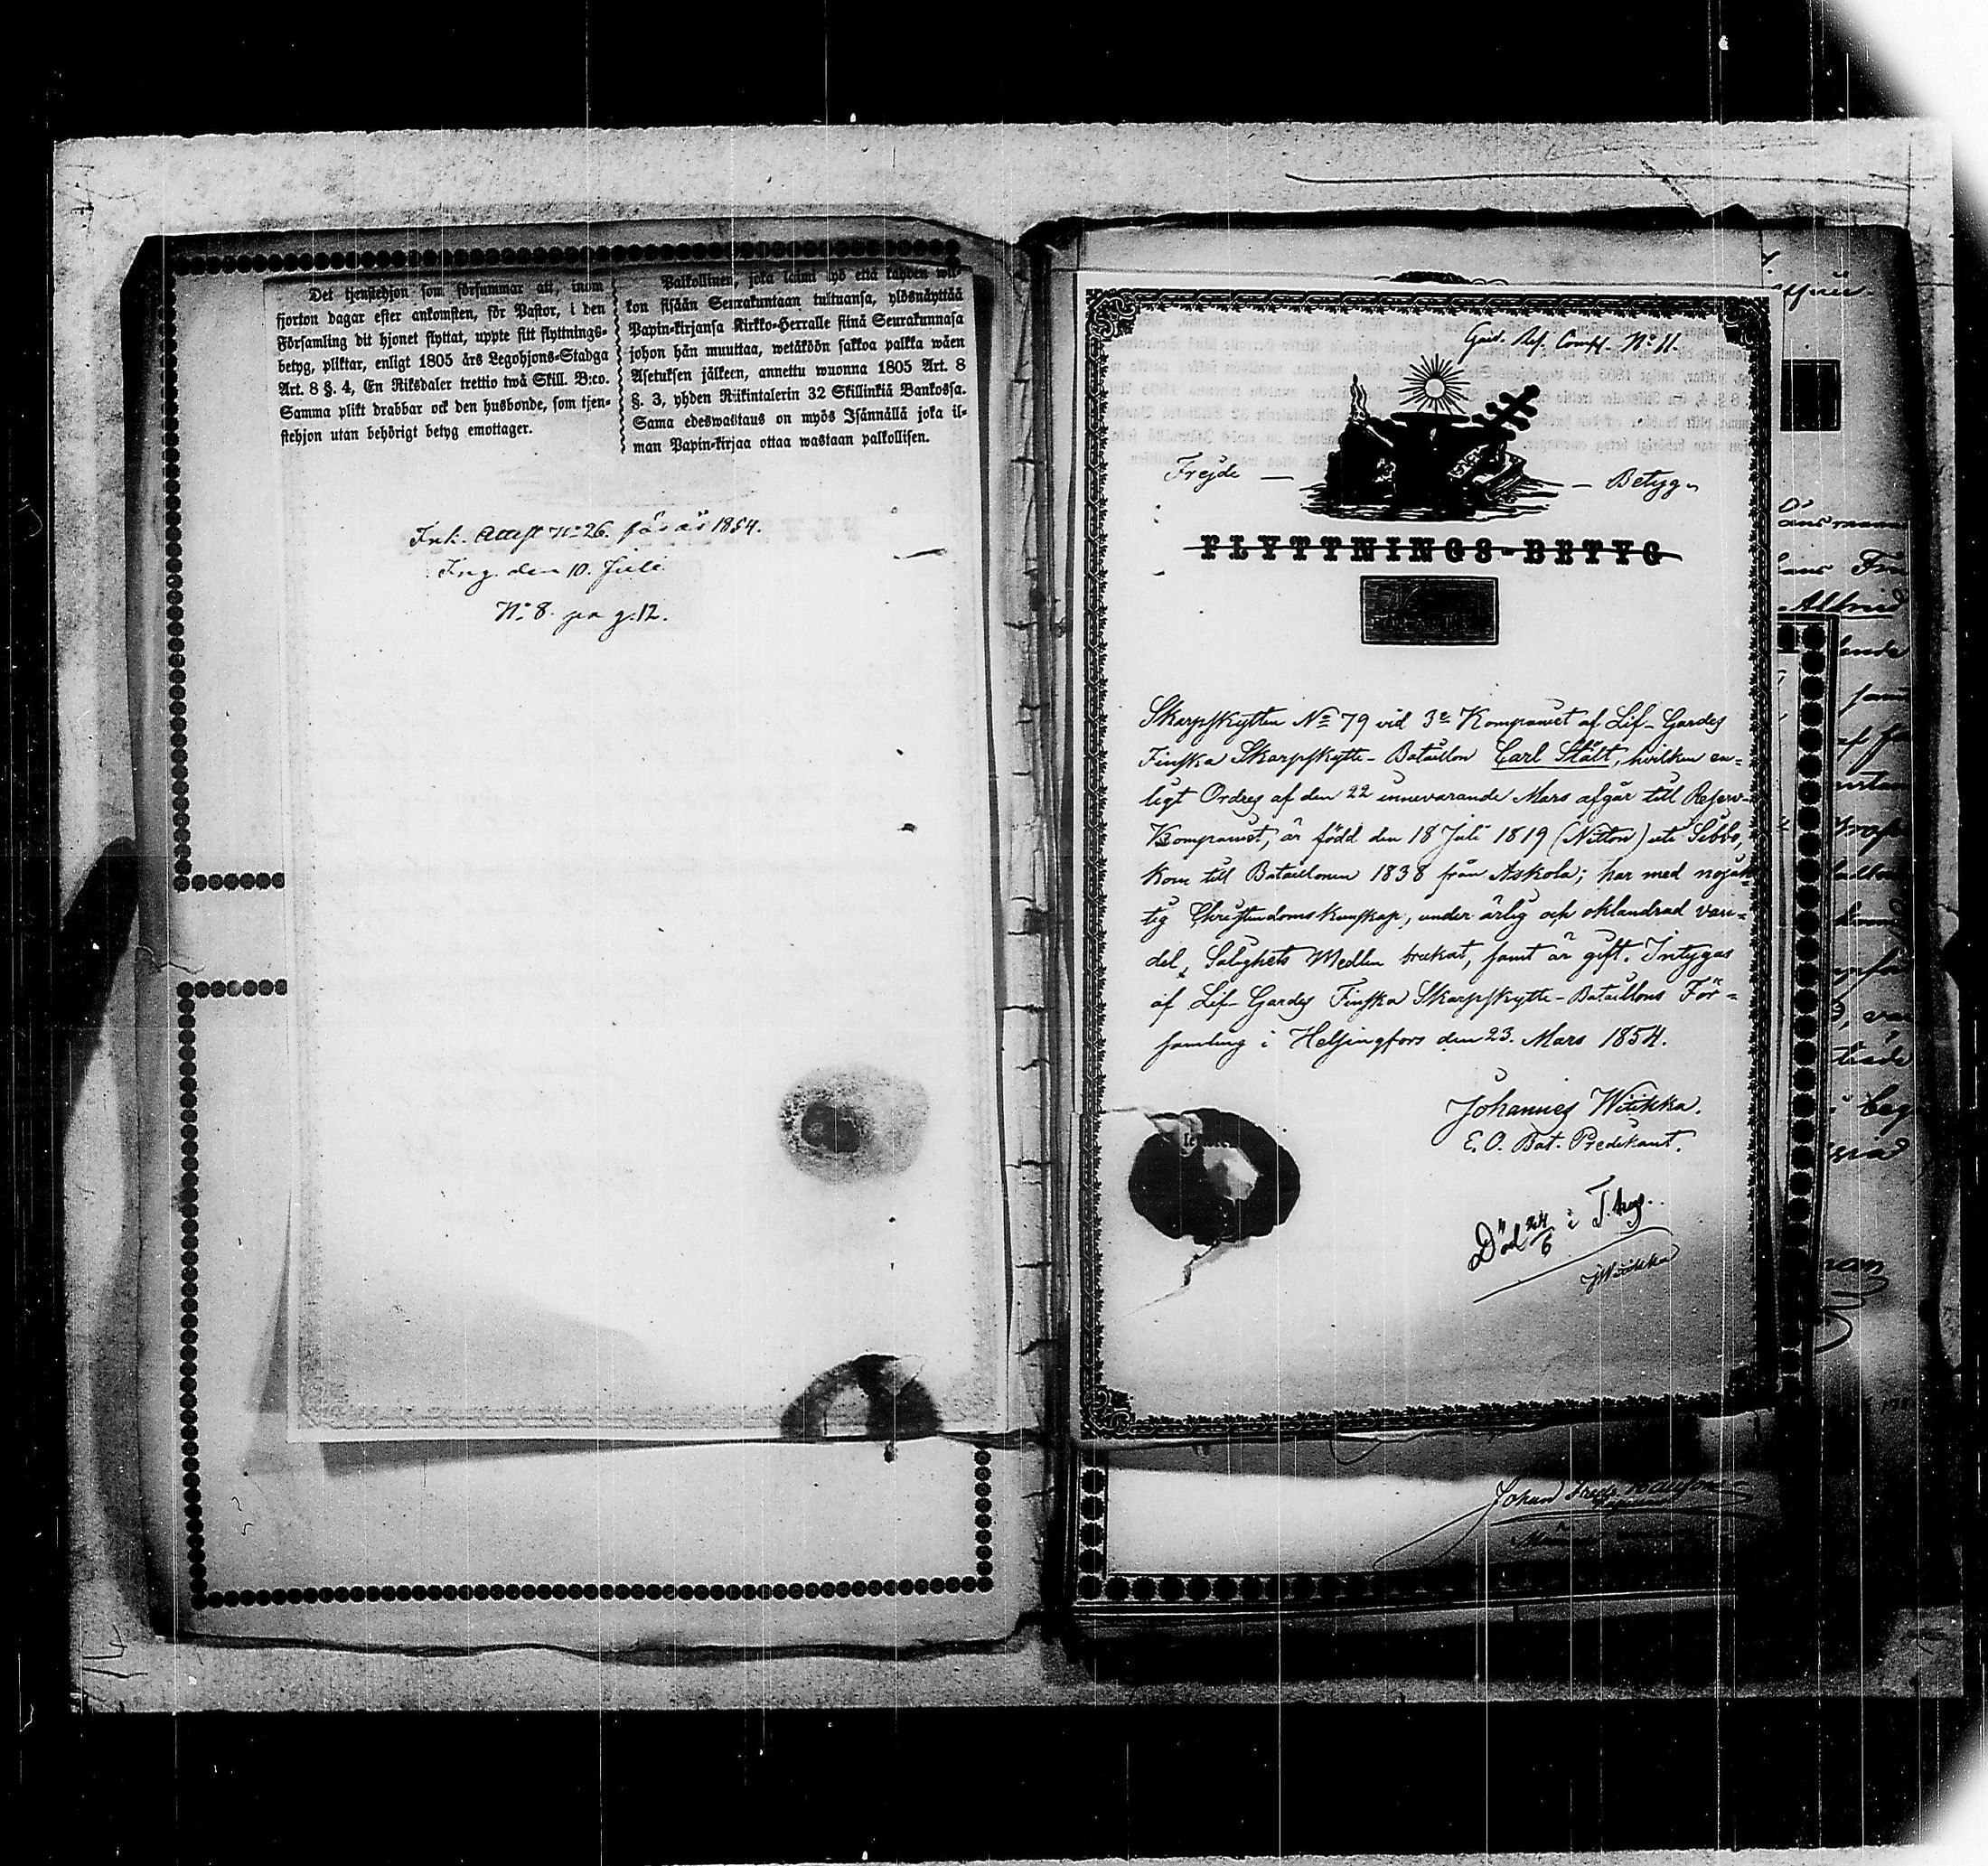 Det tjenstehjon som försummar att, inom
fjorton dagar efter ankomsten, för Pastor, i den
Församling dit hjonet flyttat, uppte sitt flyttnings-
betyg, pliktar, enligt 1805 års Legohjons-Stadga
Art. 8 §. 4, En Riksdaler trettio twå Skill. B:co.
Samma plikt drabbar ock den husbonde, som tjen-
stehjon utan behörigt betyg emottager.
Palkollinen, joka laimi lyö että kahden wii-
kon sisään Seurakuntaan tultuansa, ylösnäyttää
Papin-kirjansa Kirkko-Herralle siinä Seurakunnasa
johon hän muuttaa, wetäköön sakkoa palkka wäen
Asetuksen jälkeen, annettu wuonna 1805 Art. 8
§. 3, yhden Riikintalerin 32 Skillinkiä Bankossa.
Sama edeswastaus on myös Isännällä joka il-
man Papin-kirjaa ottaa wastaan palkollisen.
Ink. Attest No 26. för år 1854.
Ing. den 10. Juli
No 8. pag. 12.
Gard. Res. Comp. No 11.
Frejde — — Betyg
FLYTTNINGS-BETYG
Skarpskytten No 79 vid 3e Kompaniet af Lif-Gardes
Finska Skarpskytte-Bataillon Carl Stålt, hvilken en-
ligt Ordres af den 22 innevarande Mars afgår till Reserv-
Kompaniet, är född den 18 Juli 1819 (Nitton) uti Sibbo,
kom till Bataillonen 1838 från Askola; har med nöjak-
tig Christendoms kunskap, under ärlig och oklandrad van-
del, Salighets Medlen brukat, samt är gift. Intygas
af Lif-Gardes Finska Skarpskytte-Bataillons För-
samling i Helsingfors den 23. Mars 1854.
Johannes Witikka.
E. O. Bat. Predikant.
Död 24/6 i
JWitikka
Johan Fredr.